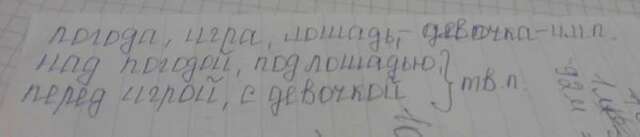 погода, игра, лошадь, - девочка - им.п.
над погодой, под лошадью,
перед игрой, с девочкой } тв.п.